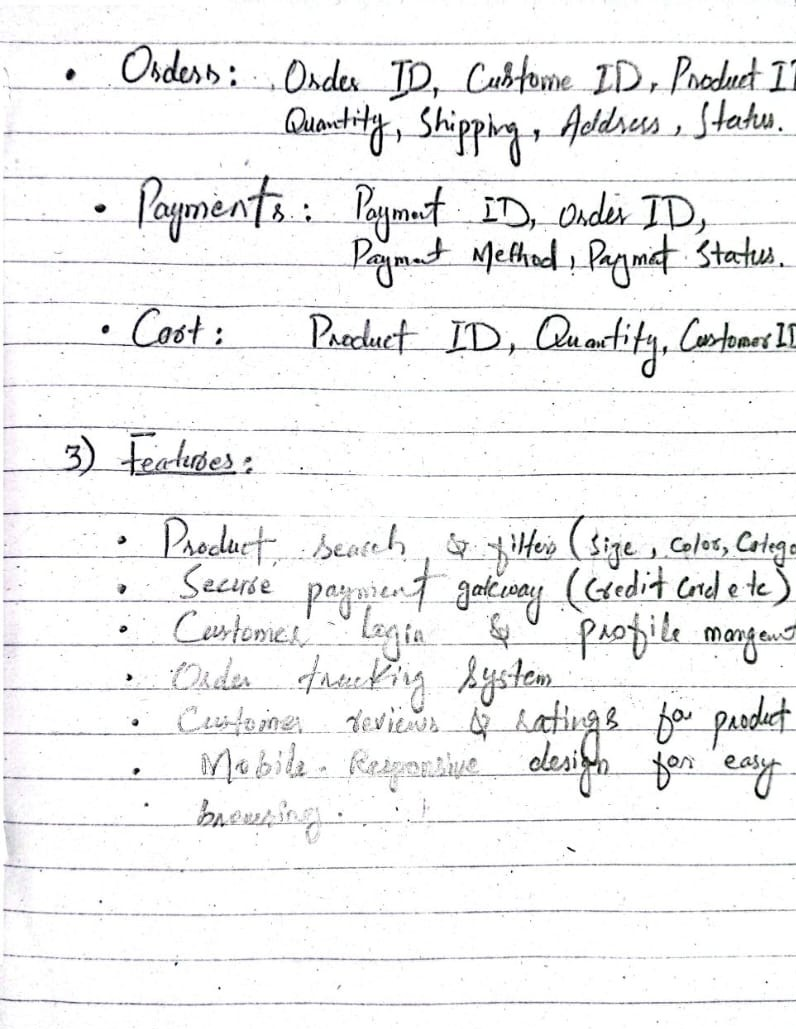 • Orders: Order ID, Custome ID, Product I
Quantity, Shipping, Address, Status.
• Payments: Payment ID, Order ID,
Payment Method, Payment Status.
• Cart: Product ID, Quantity, Customer ID
3) Features:
• Product search & filters (Size, Color, Catego
• Secure payment gateway (Credit Card etc)
• Customer login & profile mangemt
• Order tracking system
• Customer reviews & ratings for product
• Mobile-Responsive design for easy
• browsing.